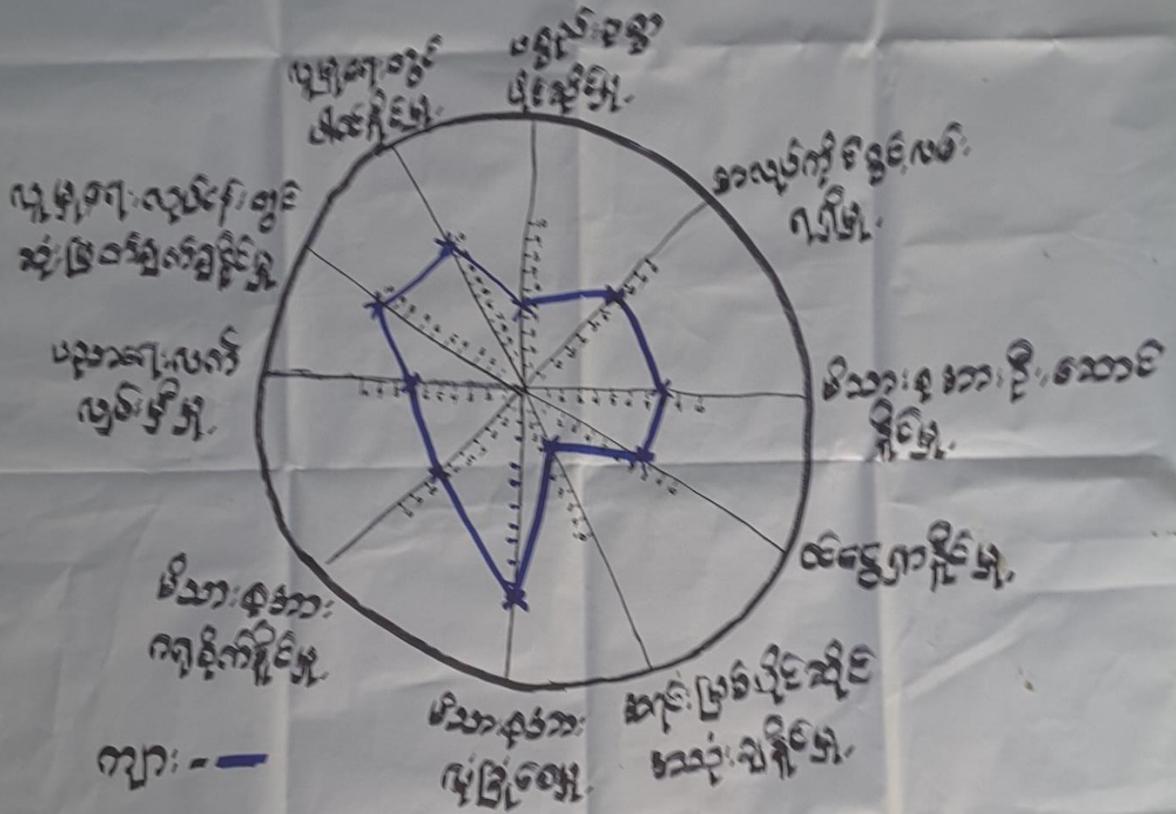 ပစ္စည်းဥစ္စာ
ပိုင်ဆိုင်မှု.
အလုပ်ကိုင်ခွင့်လမ်း
ရရှိမှု.
မိသားစုအားဦးဆောင်
နိုင်မှု.
ဝင်ငွေရှာနိုင်မှု.
အရင်းမြစ်ပိုင်ဆိုင်
အသုံးချနိုင်မှု.
မိသားစုအား
လုံခြုံစေမှု.
မိသားစုအား
ဂရုစိုက်နိုင်မှု.
ပညာရေးလက်
လှမ်းမှီမှု.
လူမှုရေးလုပ်ငန်းတွင်
ဆုံးဖြတ်
လူမှုရေးတွင်
ပါဝင်နိုင်မှု.
ကျား -